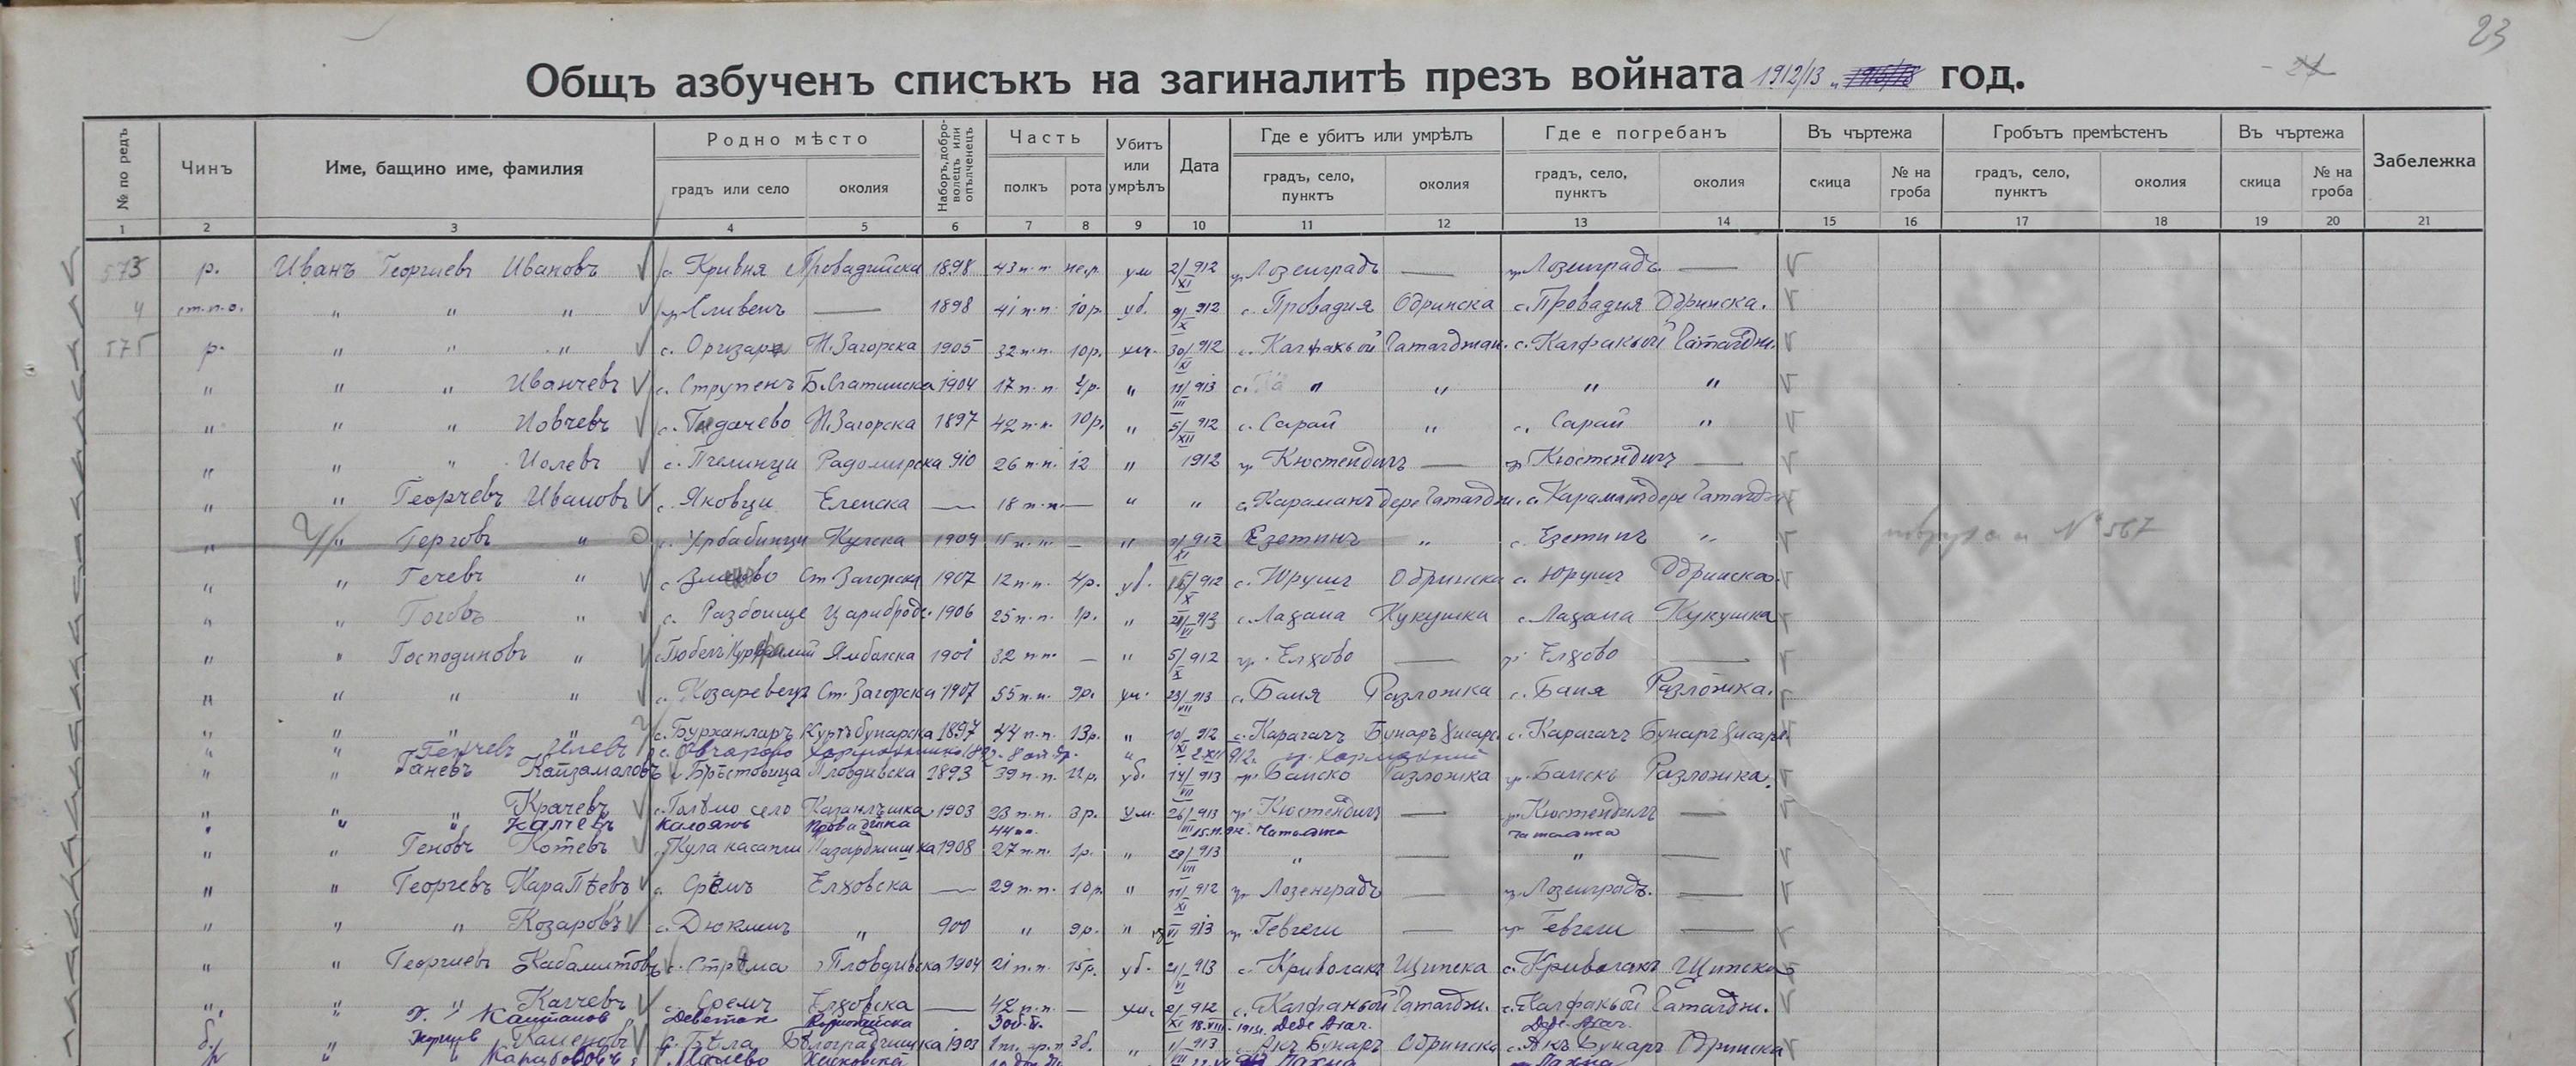 23
Общъ азбученъ списъкъ на загиналитѣ презъ войната 1912/13 и 1915/18 год.
№ по редъ Чинъ Име, бащино име, фамилия Родно мѣсто Наборъ, добро-волецъ или опълченецъ Часть Убитъ или умрѣлъ Дата Где е убитъ или умрѣлъ Где е погребанъ Въ чъртежа Гробътъ премѣстенъ Въ чъртежа Забележка
градъ или село околия полкъ рота градъ, село, пунктъ околия градъ, село, пунктъ околия скица № на гроба градъ, село, пунктъ околия скица № на гроба
1 2 3 4 5 6 7 8 9 10 11 12 13 14 15 16 17 18 19 20 21
573 р. Иванъ Георгиевъ Ивановъ с. Кривня Провадийска 1898 43 п.п. не.р. ум 2/XI 912 гр. Лозенградъ — гр. Лозенградъ —
4 ст.п.о. " " " гр. Сливенъ — 1898 41 п.п. 10 р. уб. 9/X 912 с. Провадия Одринска с. Провадия Одринска.
575 р. " " " с. Оризаре Н.Загорска 1905 32 п.п. 10 р. ум. 30/XI 912 с. Калфакьой Чаталджан. с. Калфакьой Чаталдж.
" " " Иванчевъ с. Струпенъ Б.Слатинска 1904 17 п.п. 4 р. " 11/III 913 с. " " " "
" " " Иовчевъ с. Пидачево Н.Загорска 1897 42 п.п. 10 р. " 5/XII 912 с. Сарай " с. Сарай "
" " " Иолевъ с. Пчелинци Радомирска 910 26 п.п. 12 " 1912 гр. Кюстендилъ — гр. Кюстендилъ —
" " Георчевъ Ивановъ с. Яковци Еленска — 18 п.п. — " " с. Караманъ дере Чаталдж. с. Караманъ дере Чаталдж.
" " Герговъ " с. Урбабинци Кулска 1909 15 п.п. — " 2/XI 912 Езетинъ " с. Езетинъ " № 567
" " Гечевъ " с. Ст. Загорска 1907 12 п.п. 4 р. уб. 16/X 912 с. Юрушъ Одринска с. Юрушъ Одринска.
" " Гоговъ " с. Разбоище Царибродс. 1906 25 п.п. 1 р. " 21/VI 913 с. Лазана Кукушка с. Лазана Кукушка
" " Господиновъ " Ямболска 1901 32 п.п. — " 5/X 912 гр. Елхово — гр. Елхово —
" " " " с. Козаревецъ Ст. Загорска 1907 55 п.п. 9 р. ум. 23/VII 913 с. Баня Разложка с. Баня Разложка.
" " " " с. Бурханларъ Куртъбунарска 1897 44 п.п. 13 р. " 10/XI 912 с. Карагачъ Бунаръ Хисар. с. Карагачъ Бунаръ Хисар.
" " Генчевъ Илевъ с. Овчарово Харманлийска " 2 XII 912. гр. Харманлий
" " Ганевъ Кайзамаловъ с. Брѣстовица Пловдивска 1893 39 п.п. 11 р. уб. 14/VII 913 гр. Банско Разложка гр. Банско Разложка.
" " " Крачевъ с. Голѣмо село Казанлъшка 1903 23 п.п. 3 р. ум. 26/VII 913 гр. Кюстендилъ — гр. Кюстендилъ —
" " " Калчевъ Калоянъ Провадийка 44 пп. 15.11.912 Чаталджа Чаталджа
" " Геновъ Котевъ Пазарджишка 1908 27 п.п. 1 р. " 29/VII 913 " — " —
" " Георгевъ Кара Пѣевъ с. Срѣмъ Елховска — 29 п.п. 10 р. " 11/XI 912 гр. Лозенградъ — гр. Лозенградъ. —
" " " Козаровъ с. Дюкменъ " 900 " 9 р. " VI 913 гр. Гевгели — гр. Гевгели —
" " Георгиевъ Кабамитовъ с. Стрѣма Пловдивска 1904 21 п.п. 15 р. уб. 21/VI 913 с. Криволакъ Щипска с. Криволакъ Щипска
" " " Калчевъ с. Сремъ Елховска — 42 п.п. — ум. 2/XI 912 с. Калфакьой Чаталдж. с. Калфакьой Чаталдж.
" " Г. Каштановъ Деветак 18.VIII.1913г. Деде Агач. Деде Агач.
б. " Каменовъ с. Бѣла Бѣлоградчишка 1903 3 б. " 11/VII 913 с. Акъ Бунаръ Одринска с. Акъ Бунаръ Одринска
р " " Малево Хасковска